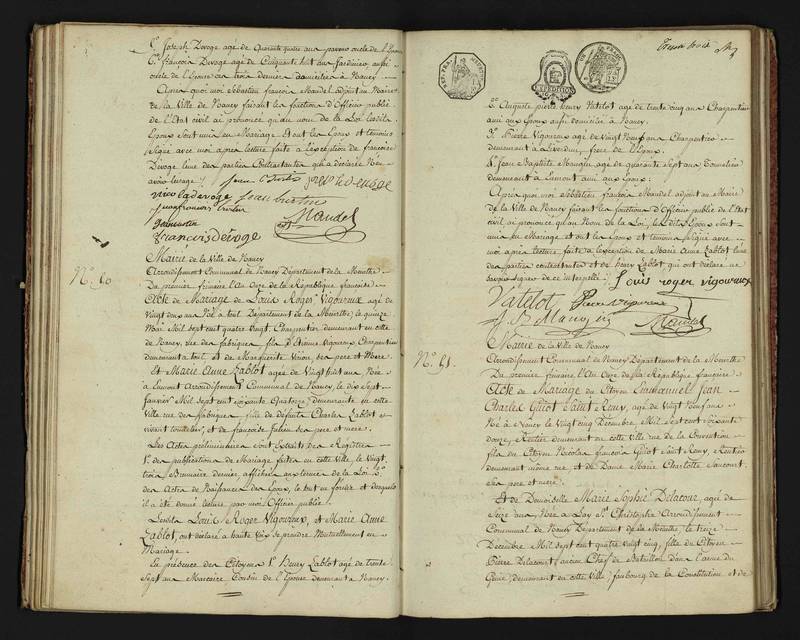 1° Joseph Devoge agé de Quarante quatre ans parrain oncle de l'Epouse
6° françois Devoge agé de Cinquante huit ans Jardinier, aussi
oncle de l'Epouse ces trois derniers domiciliés à Nancy
Après quoi moi Sébastien françois Mandel adjoint au Maire
de la Ville de Nancy faisant les fonctions d'Officier public
de l'Etat civil ai prononcé qu'au nom de la Loi lesdits
Epoux sont unis en Mariage et ont les Epoux et temoins
signé avec moi après lecture faite à l'exception de françoise
Devoge l'une des parties Contractantes qui a déclaré
nicoladevoge
Mandel
francoisdevoge
N°. 50
Mairie de la Ville de Nancy
Arrondissement Communal de Nancy Département de la Meurthe
Du premier frimaire l'An Onze de la République française
Acte de Mariage de Louis Roger Vigouroux agé de
Vingt deux ans Né à toul Département de la Meurthe le quinze
Mai Mil sept cent quatre vingt, Charpentier demeurant en cette
de Nancy, rue des fabriques fils d'Etienne Vigouroux Charpentier
demeurant à toul et de Marguerite ses pere et Mere
Et Marie Anne Lablot agée de Vingt huit ans Née
à Arrondissement Communal de Nancy, le dix Sept
Janvier Mil sept cent soixante Quatorze demeurante en cette
Ville rue des fabriques fille de défunts Charles Lablot
vivant tonnelier, et de françoise ses pere et mere.
Les Actes préliminaires sont Extraits des Registres
1° des publications de Mariage faites en cette ville, le Vingt
trois Brumaire dernier, affichées aux termes de la Loi 2°
des Actes de Naissances des Epoux, le tout en forme et desquels
il a été donné lecture par moi Officier public
Lesdits Louis Roger Vigouroux, et Marie Anne
Lablot, ont déclaré à haute Voix se prendre Mutuellement en
Mariage.
En présence des Citoyens 1° Henry Lablot agé de trente
Sept ans Cousin de l'Epouse demeurant à Nancy.
2° Auguste pierre henry Vatelot agé de trente cinq ans Charpentier
ami aux Epoux aussi domicilié à Nancy.
3° Pierre Vigouroux agé de Vingt Neuf ans Charpentier
demeurant à Liverdun, frere de l'Epoux
4° Jean Baptiste Maugin agé de quarante sept ans Tonnelier
demeurant à ami aux Epoux
Après quoi moi Sébastien françois Mandel adjoint au Maire
de la Ville de Nancy faisant les fonctions d'Officier public de l'Etat
civil ai prononcé qu'au Nom de la Loi, lesdits Epoux sont
unis en Mariage et ont les Epoux et temoins signé avec
moi après lecture faite à l'exception de Marie Anne Lablot l'une
des parties contractantes et de henry Lablot qui ont déclaré ne
savoir signer de ce interpellés Louis roger vigouroux
Vatelot Pierre Vigouroux
J. B. Maugin Mandel
N°. 51.
Mairie de la Ville de Nancy
Arrondissement Communal de Nancy Département de la Meurthe
Du premier frimaire, l'An Onze de la République française
Acte de Mariage du Citoyen Emmanuel Jean
Charles Guiot Saint Remy, agé de Vingt Neuf ans
Né à Nancy le Vingt cinq Décembre Mil sept cent soixante
douze, Rentier demeurant en cette ville rue de la Convention
fils du Citoyen Nicolas françois Guiot Saint Remy, Rentier
demeurant même rue et de Dame Marie Charlotte Jaucourt
ses pere et mere.
Et de Demoiselle Marie Sophie Delacour agée de
Seize ans Née à Lay St. Christophe Arrondissement
Communal de Nancy Département de la Meurthe, le treize
Décembre Mil sept cent quatre vingt cinq, fille du Citoyen
Pierre Delacour ancien Chef de Bataillon dans l'arme du
Genie demeurant en cette Ville faubourg de la Constitution et de